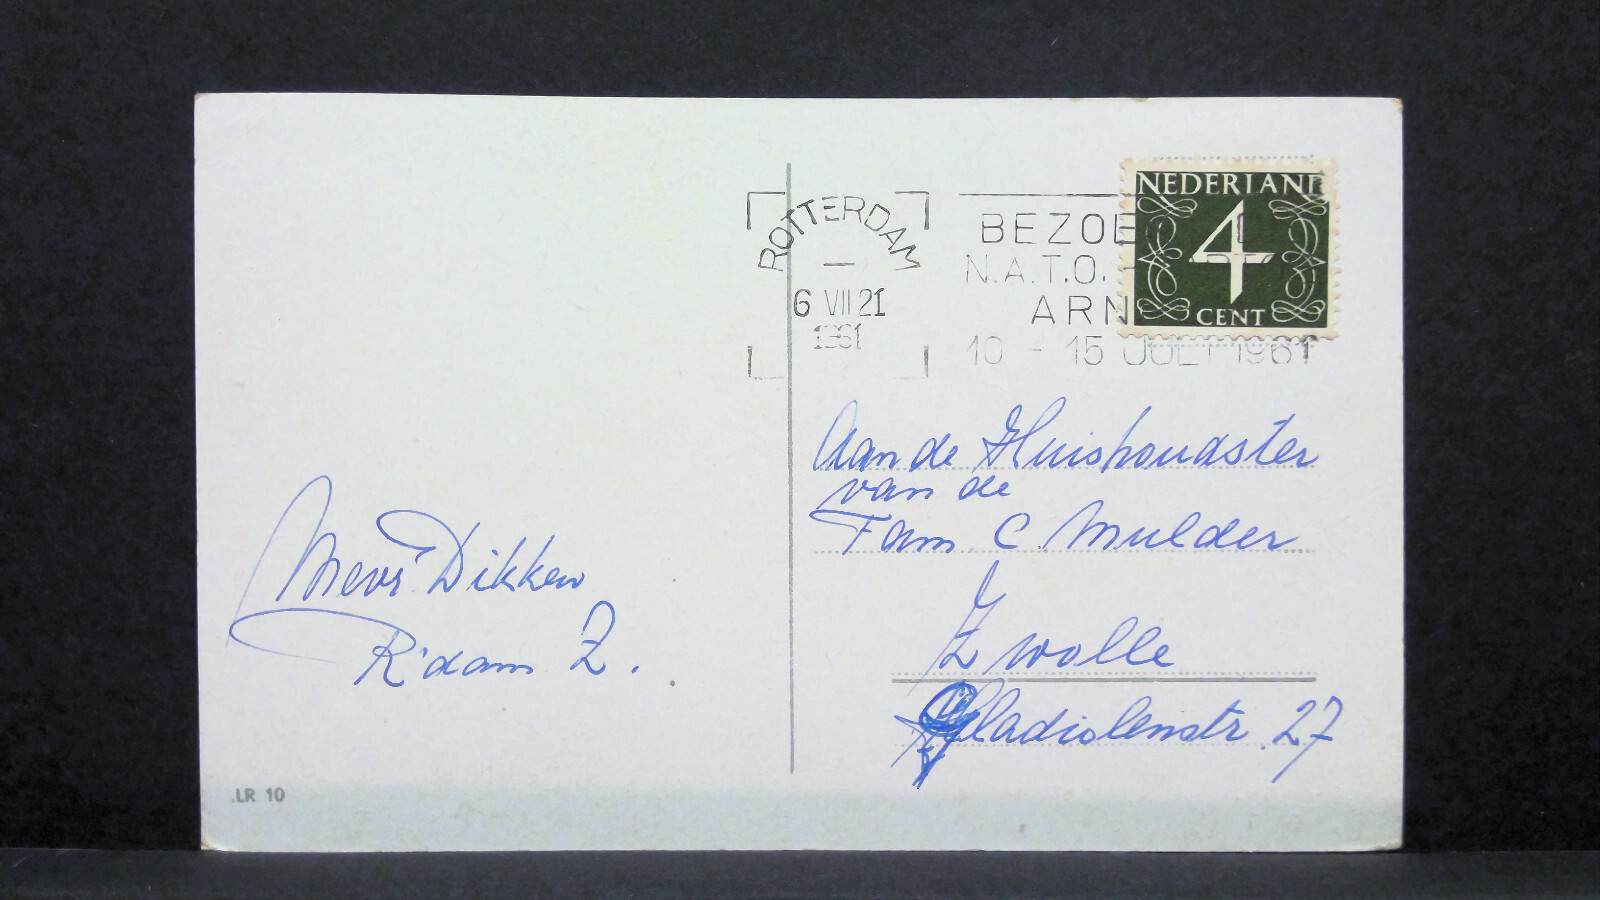 ROTTERDAM
6 VII 21
1961
BEZOE
N.A.T.O.
ARN
10 - 15 JULI 1961
NEDERLAND
4
CENT
Aan de Huishoudster
van de
Fam. C. Mulder
Zwolle
Gladiolenstr. 27
Mevr Dikken
R'dam Z.
LR 10